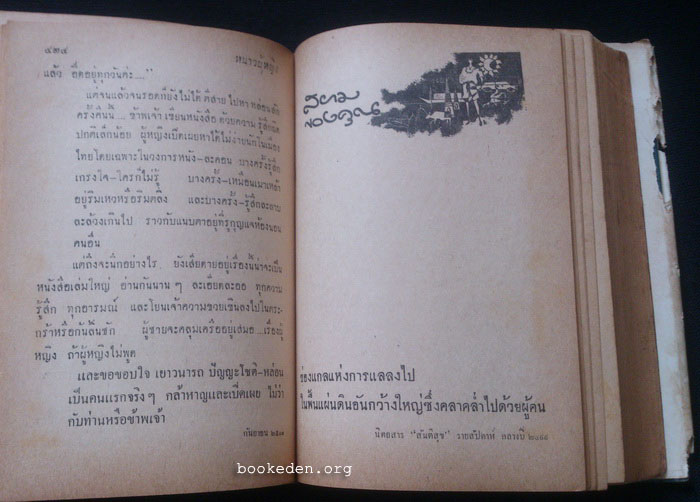 ๔๗๔
หนาวผู้หญิง
แล้ว อึดอยู่ทุกวันค่ะ...."
แต่จนแล้วจนรอดก็ยังไม่ได้ ตีสาย ไปหา
ครั้งคืนนี้... ข้าพเจ้า เขียนหนังสือ ด้วยความ รู้สึกผิด
ปกติเล็กน้อย ผู้หญิงเปิดเผยหาได้ไม่ง่ายนักในเมือง
ไทยโดยเฉพาะในวงการหนัง-ละคอน บางครั้งรู้สึก
เกรงใจ-ใครก็ไม่รู้ บางครั้ง-เหมือนเมาเหล้า
อยู่ริมเหวหรือริมตลิ่ง และบางครั้ง-รู้สึกละลาบ
ละล้วงเกินไป ราวกับแนบตาอยู่ที่รูกุญแจห้องนอน
คนอื่น
แต่ถึงจะนึกอย่างไร ยังเสียดายอยู่เรื่องนี้น่าจะเป็น
หนังสือเล่มใหญ่ อ่านกันนาน ๆ ละเอียดละออ ทุกความ
รู้สึก ทุกอารมณ์ และโยนเจ้าความขวยเขินลงไปในตระ-
กร้าหรือก้นลิ้นชัก ผู้ชายจะคลุมเครืออยู่เสมอ...เรื่องผู้
หญิง ถ้าผู้หญิงไม่พูด
และขอขอบใจ เยาวนารถ ปัญญะโชติ-หล่อน
เป็นคนแรกจริงๆ กล้าหาญและเปิดเผย ไม่ว่า
กับท่านหรือข้าพเจ้า
กันยายน ๒๕๑๑
สยาม
ของคุณ
ช่องแกลแห่งการแลลงไป
ในพื้นแผ่นดินอันกว้างใหญ่ซึ่งคลาคล่ำไปด้วยผู้คน
นิตยสาร "สันติสุข" รายสัปดาห์ กลางปี
bookeden.org